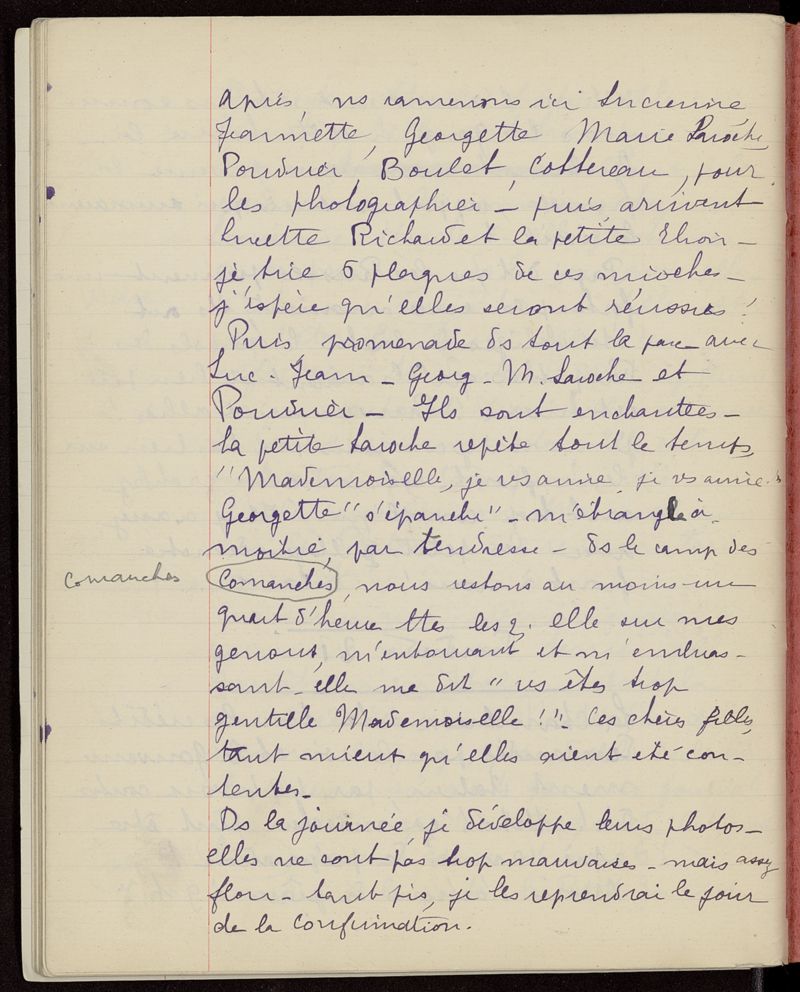 après, ns ramenons ici Lucienne,
Jeannette, Georgette Marie Laroche,
Poirier, Boulet, Cottereau, pour
les photographier – puis, arrivent
Lucette Richard et la petite –
je tire 6 plaques de ces mioches –
j'espère qu'elles seront réussies !
Puis promenade ds tout le parc avec
Luc. Jean – Georg – M. Laroche et
Poirier – Ils sont enchantées –
la petite Laroche répète tout le temps,
"Mademoiselle, je vs aime, je vs aime.
Georgette "s'épanche" – m'étrangle à
moitié, par tendresse – ds le camp des
Comanches Comanches, nous restons au moins un
quart d'heure ttes les 2. elle sur mes
genoux, m'entourant et m'embras-
sant – elle me dit "vs êtes trop
gentille Mademoiselle !" – Ces chères filles,
tant mieux qu'elles aient été con-
tentes –
Ds la journée, je développe leurs photos –
elles ne sont pas trop mauvaises – mais assez
flou – tant pis, je les reprendrai le jour
de la confirmation.